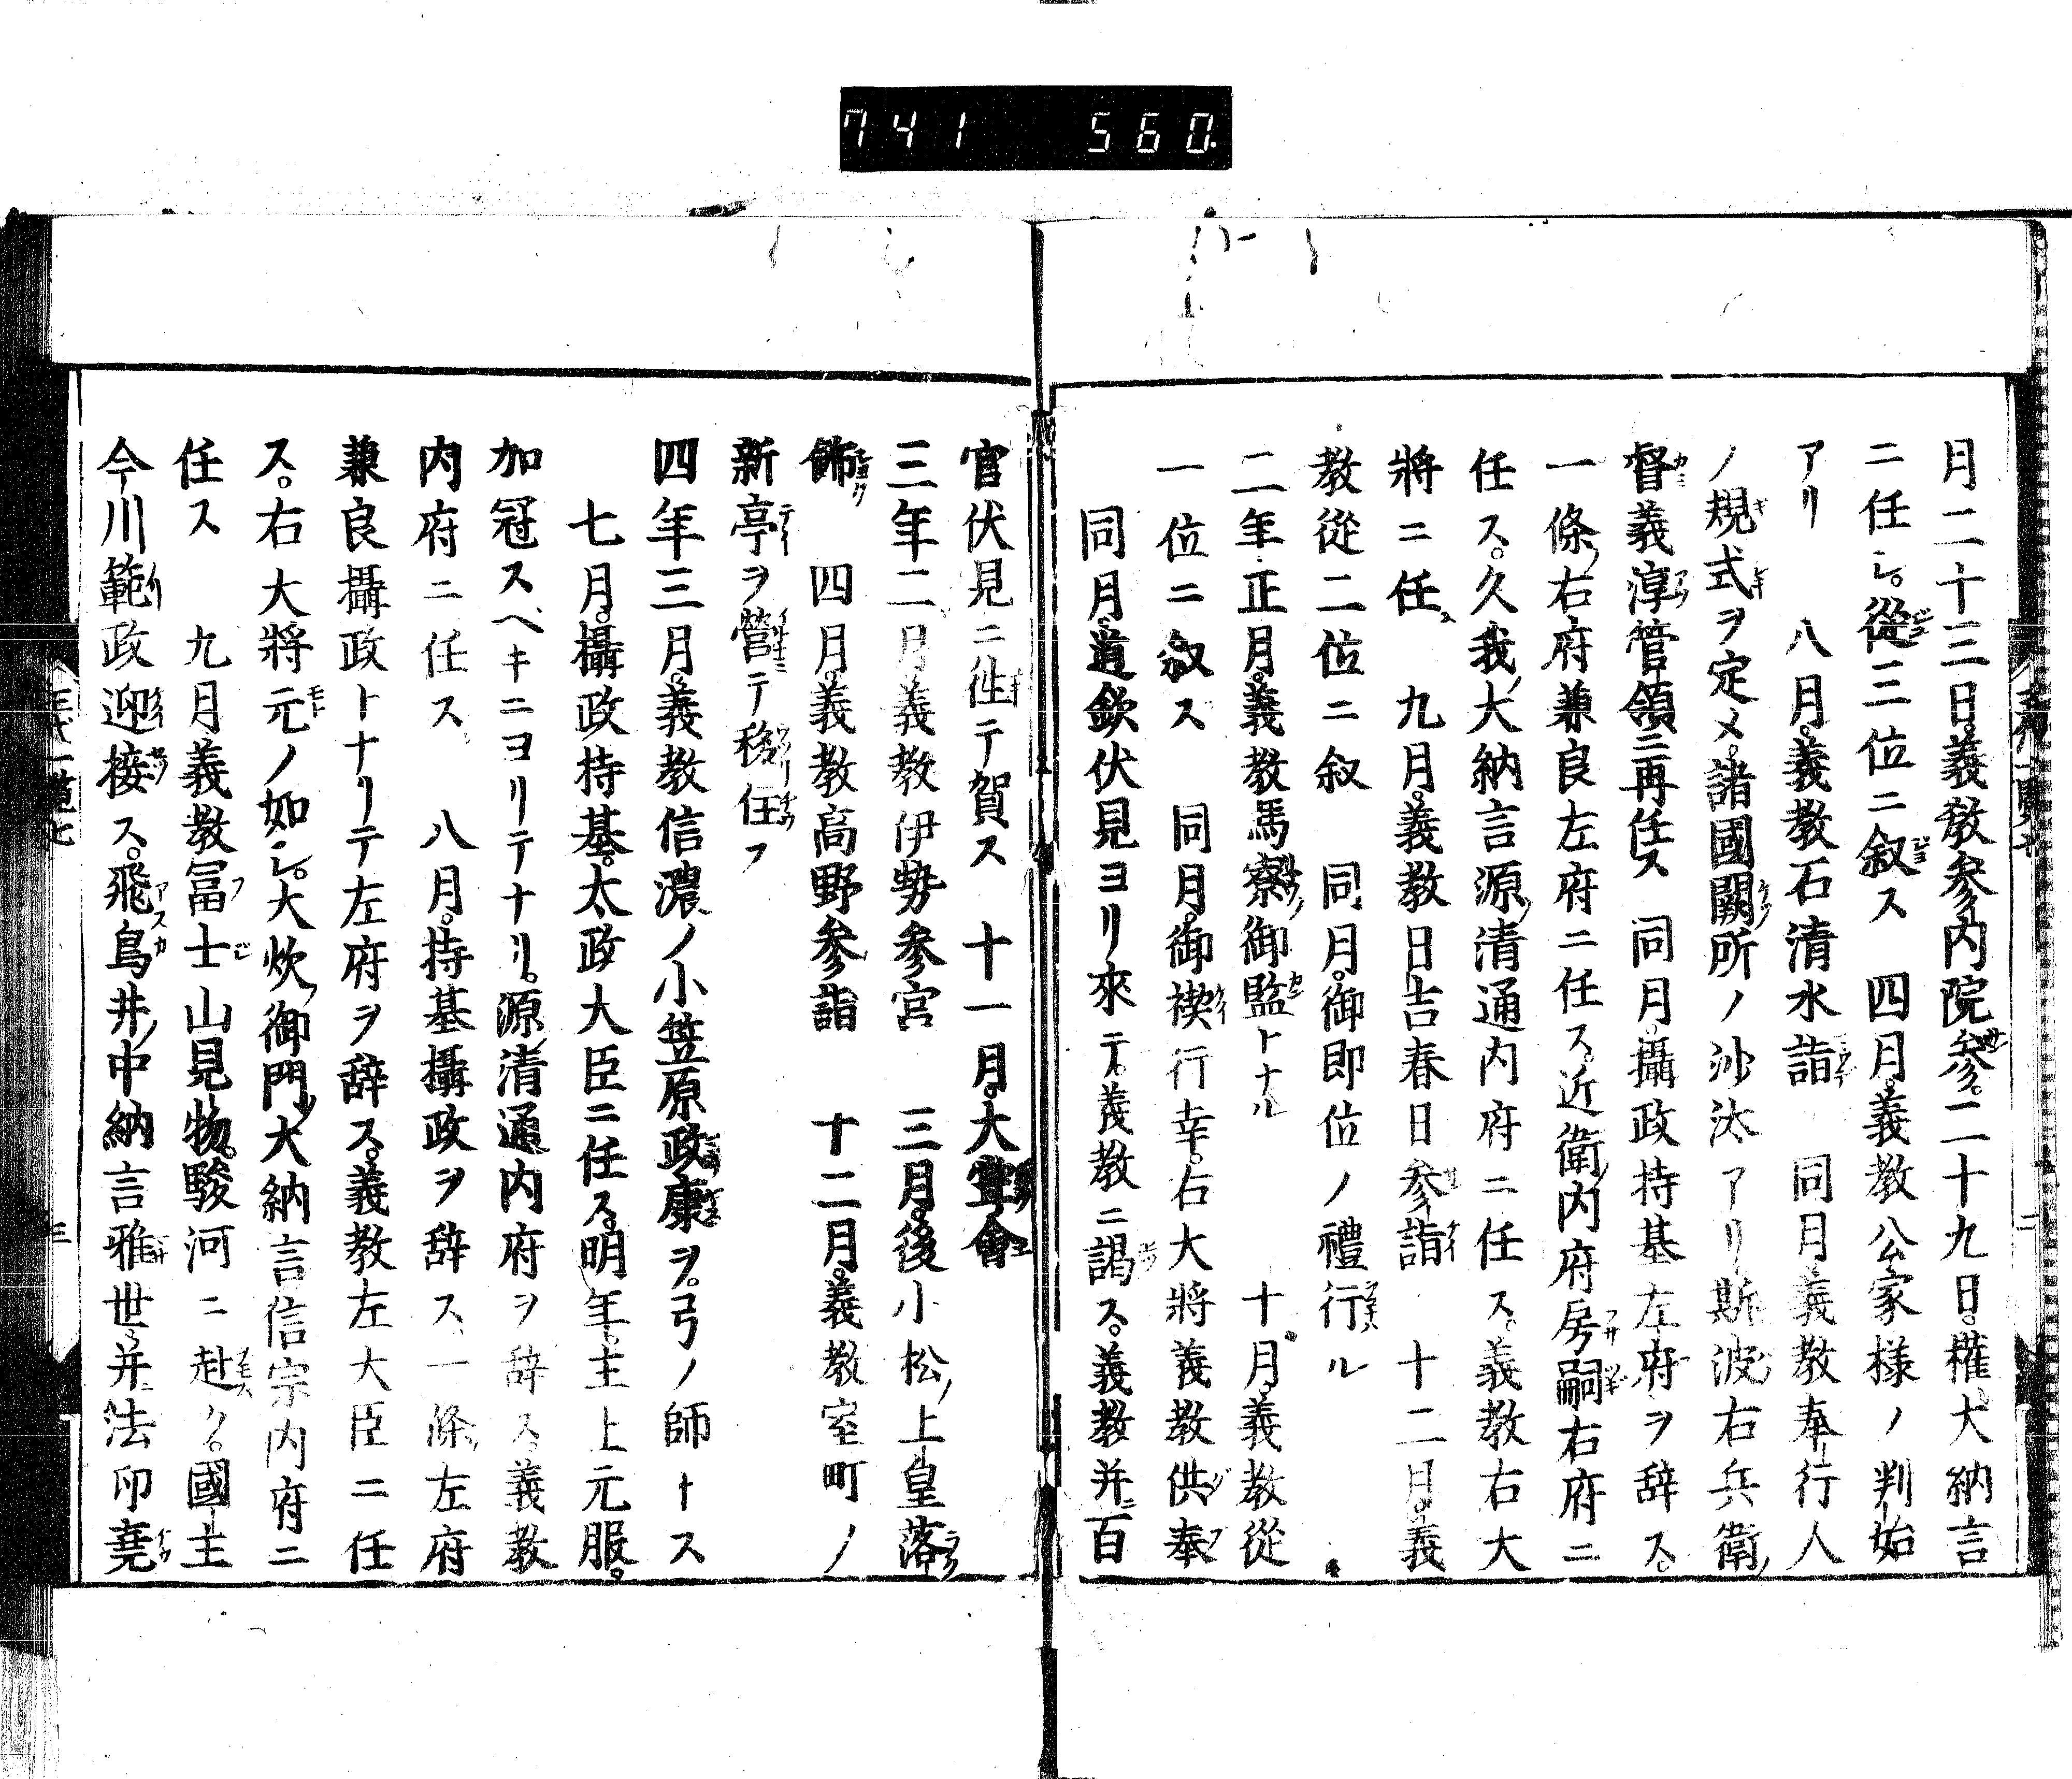 741 560
月二十三日。義教参内院参。二十九日。權大納言
ニ任シ。從三位ニ叙ス 四月。義教公家様ノ判始
アリ 八月。義教石清水詣 同月義教奉行人
ノ規式ヲ定メ。諸國闕所ノ沙汰アリ 斯波右兵衛
督義淳管領ニ再任ス 同月。攝政持基左府ヲ辞ス。
一條右府兼良左府ニ任ス。近衛内府房嗣右府ニ
任ス。久我大納言源清通内府ニ任ス。義教右大
將ニ任ス 九月。義教日吉春日参詣 十二月。義
教從二位ニ叙 同月。御即位ノ禮行ル
二年正月。義教馬寮御監トナル 十月。義教從
一位ニ叙ス 同月。御禊行幸。右大將義教供奉
同月。道欽伏見ヨリ來テ。義教ニ謁ス。義教并百
官伏見ニ徃テ賀ス 十一月。大嘗會
三年二月義教伊勢参宮 三月。後小松上皇落
飾 四月。義教高野参詣 十二月。義教室町ノ
新亭ヲ營テ移住ス
四年三月。義教信濃ノ小笠原政康ヲ。弓ノ師トス
七月。攝政持基。太政大臣ニ任ス。明年。主上元服。
加冠スヘキニヨリテナリ。源清通内府ヲ辞ス。義教
内府ニ任ス 八月。持基攝政ヲ辞ス。一條左府
兼良攝政トナリテ左府ヲ辞ス。義教左大臣ニ任
ス。右大將元ノ如シ。大炊御門大納言信宗内府ニ
任ス 九月義教冨士山見物。駿河ニ赴ク。國主
今川範政迎接ス。飛鳥井中納言雅世并法印堯